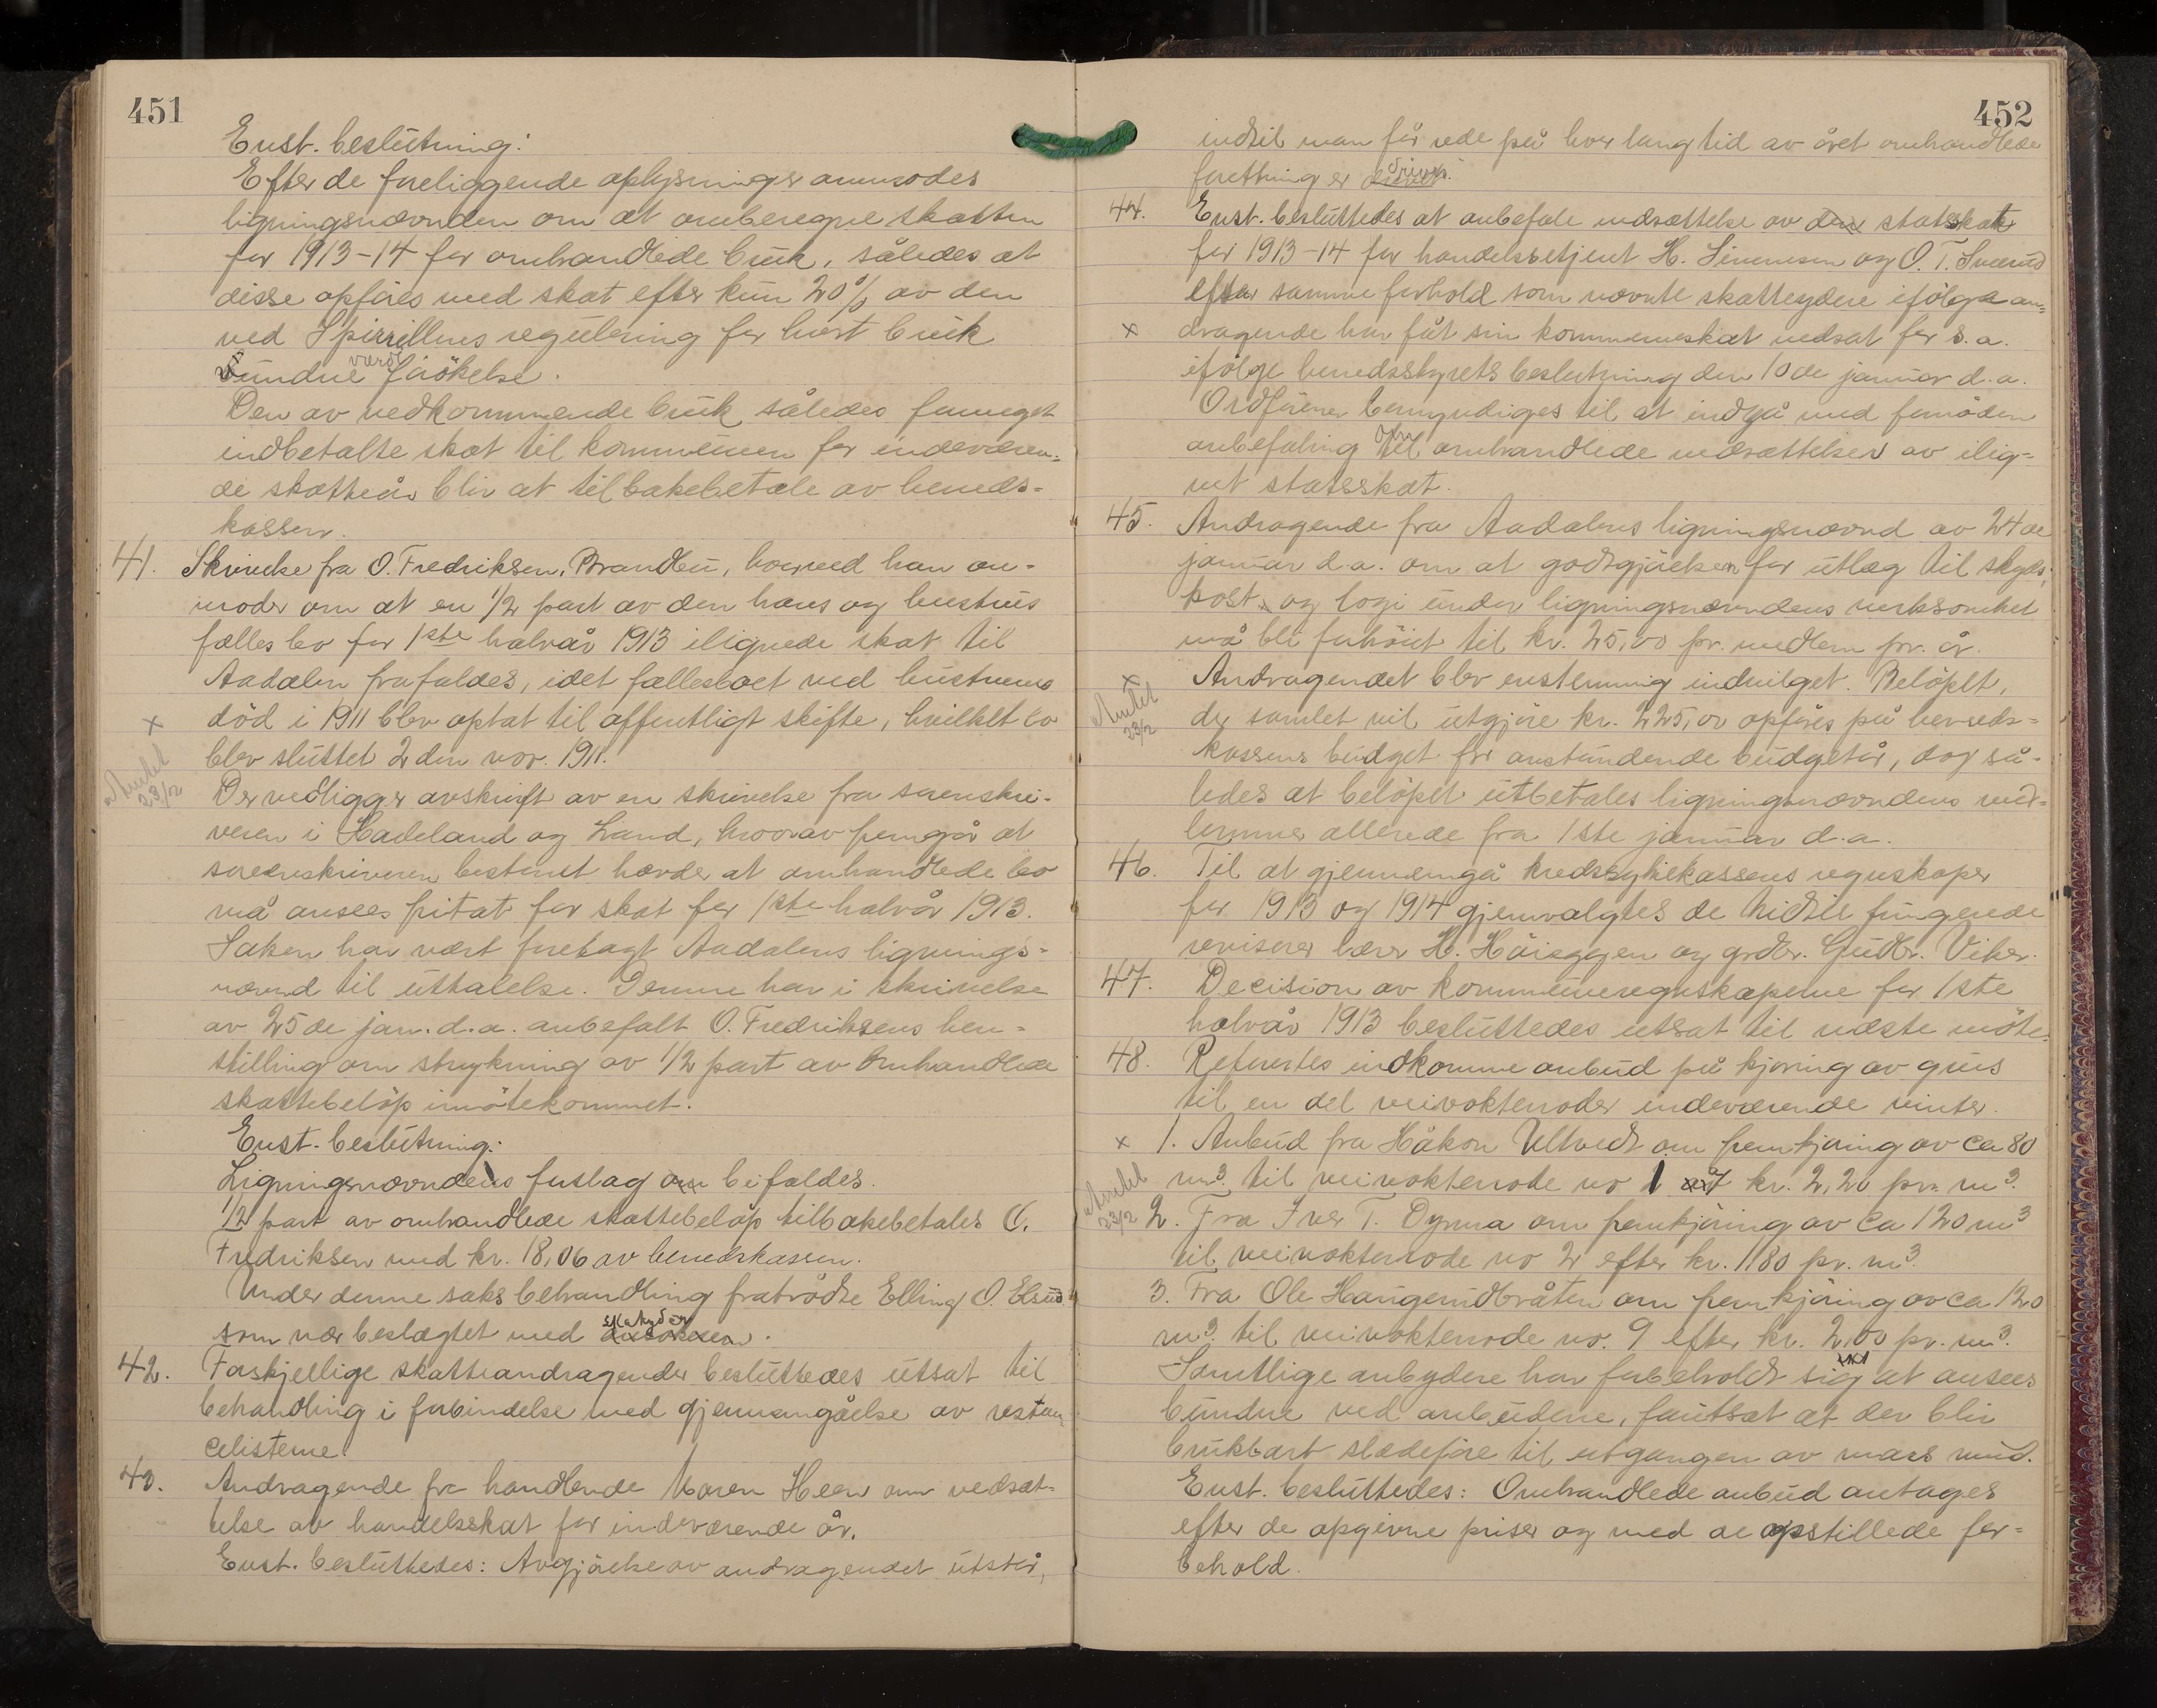 451
Enst. beslutning:
Efter de foreliggende oplysninger anmodes
ligningsnævnden om at omberegne skatten
for 1913-14 for omhandlede bruk, således at
disse opføres med skat efter kun 20% av den
ved Spirrillens regulering for hvert bruk
vundne værdiforøkelse.
Den av vedkommende bruk således formeget
indbetalte skat til kommunen for indeværen-
de skatteår blir at tilbakebetale av herreds-
kassen.
41. Skrivelse fra O. Fredriksen, Brandbu, hvorved han an-
moder om at en 1/2 part av den hans og hustrus
fællesbo for 1ste halvår 1913 ilignede skat til
Aadalen frafaldes, idet fællesboet ved hustruens
× død i 1911 blev optat til offentligt skifte, hvilket bo
blev sluttet 2den nov. 1911.
Anmeldt 23/2
Der vedligger avskrift av en skrivelse fra sorenskri-
veren i Hadeland og Land, hvorav fremgår at
sorenskriveren bestemt hævder at omhandlede bo
må ansees fritat for skat for 1ste halvår 1913.
Saken har vært forelagt Aadalens lignings-
nævnd til uttalelse. Denne har i skrivelse
av 25de jan. d.a. anbefalt O. Fredriksens hen-
stilling om strykning av 1/2 part av omhandlede
skattebeløp imøtekommet.
Enst. beslutning:
Ligningsnævndens forslag om bifaldes.
1/2 part av omhandlede skattebeløp tilbakebetales O.
Fredriksen med kr. 18,06 av herredskassen.
Under denne saks behandling fratrådte Elling O. Elsrud
som nær beslægtet med skatyder.
42. Forskjellige skatteandragender besluttedes utsat til
behandling i forbindelse med gjennemgåelse av restan-
celisterne.
43. Andragende fra handlende Maren Heen om nedsæt-
telse av handelsskat for indeværende år.
Enst. besluttedes: Avgjørelse av andragendet utstår,
452
indtil man får rede på hvor lang tid av året omhandlede
forretning er drivi.
44. Enst. besluttedes at anbefale nedsættelse av den statsskat
for 1913-14 for handelsbetjent H. Simensen og O. T. Sværud
efter samme forhold som nævnte skatteydere ifølge an-
× dragende har fåt sin kommuneskat nedsat for s.a.
ifølge herredsstyrets beslutning den 10de januar d.a.
Ordføreren bemyndiges til at indgå med fornøden
anbefaling om til omhandlede nedsættelser av ilig-
net statsskat.
45. Andragende fra Aadalens ligningsnævnd av 24de
januar d.a. om at godtgjørelsen for utlæg til skyds,
kost og logi under ligningsnævndens virksomhet
må bli forhøiet til kr. 25,00 pr. medlem pr. år.
× Andragendet blev enstemmig indvilget. Beløpet,
Anmeldt 23/2
der samlet vil utgjøre kr. 225,00 opføres på herreds-
kassens budget for anstundende budgetår, dog så-
ledes at beløpet utbetales ligningsnævndens med-
lemmer allerede fra 1ste januar d.a.
46. Til at gjennemgå kredssykekassens regnskaper
for 1913 og 1914 gjenvalgtes de hidtil fungerede
revisorer lærer H. Høieggen og grdbr. Gudbr. Viker.
47. Decision av kommuneregnskaperne for 1ste
halvår 1913 besluttedes utsat til næste møte.
48. Refertes indkomne anbud på kjøring av grus
til en del veivokterroder indeværende vinter.
× 1. Anbud fra Håkon Ultvedt om fremkjøring av ca 80
m3 til veivokterrode no 1 a kr. 2,20 pr. m3.
Anmeldt 23/2
2. Fra Iver T. Dynna om fremkjøring av ca 120 m3
til veivokterrode no 2 efter kr. 1,80 pr. m3.
3. Fra Ole Haugerudbråten om fremkjøring av ca 120
m3 til veivokterrode no. 9 efter kr. 2,00 pr. m3.
Samtlige anbydere har forbeholdt sig at ansees
bundne ved anbudene, forutsat at der blir
brukbart slædeføre til utgangen av mars mnd.
Enst. besluttedes: Omhandlede anbud antages
efter de opgivne priser og med de opstillede for-
behold.